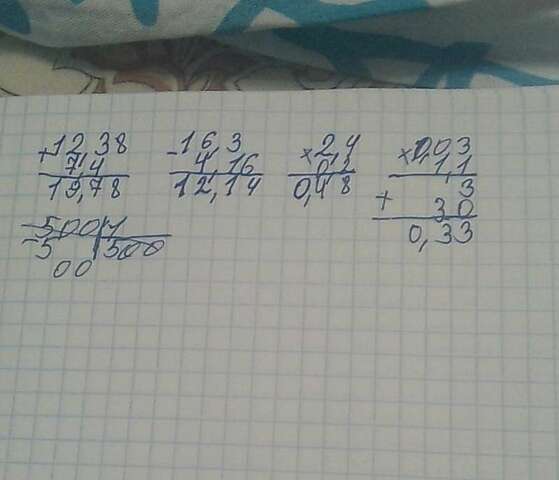 +12,38 -16,3 ×2,4 ×0,03
7,4 4,16 0,2 1,1
19,78 12,14 0,48 3
+ 30
0,33
-500 1
5 500
00